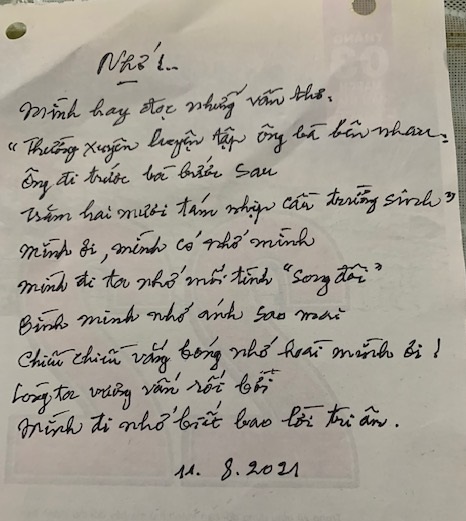 Nhớ...
Mình hay đọc những vần thơ.
"Thường xuyên luyện tập ông bà bên nhau.
Ông đi trước bà bước sau
Trăm hai mươi tám nhịp cầu trường sinh"
Mình ơi, mình có nhớ mình
Mình đi ta nhớ mối tình "Song đôi"
Bình minh nhớ ánh sao mai
Chiều chiều vắng bóng nhớ hoài mình ơi!
Lòng ta vương vấn rối bời
Mình đi nhớ biết bao lời tri ân.
11. 8. 2021
THÁNG
03